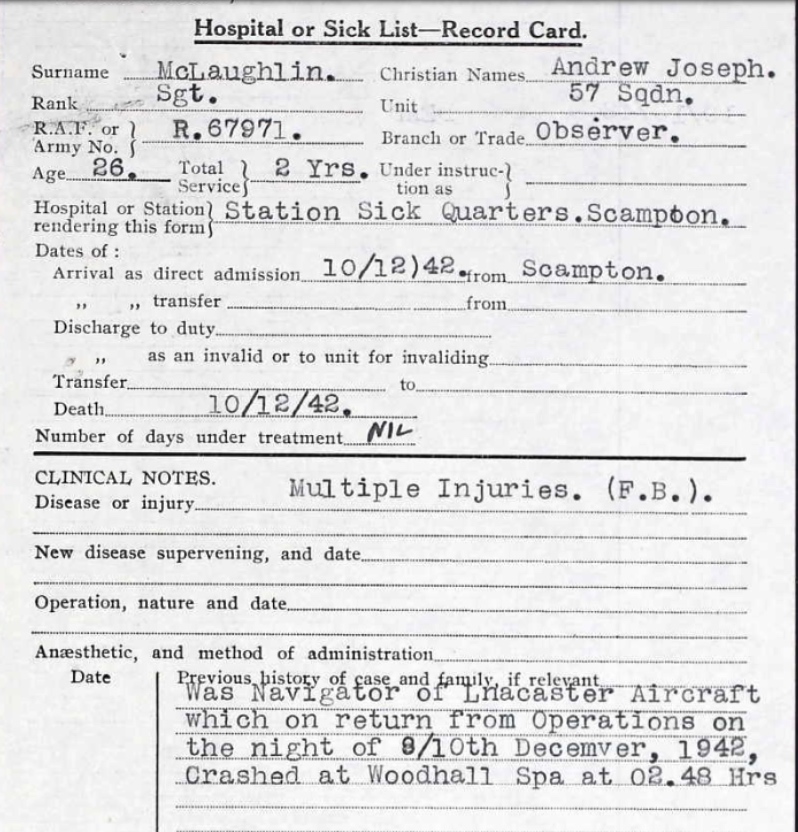 Hospital or Sick List—Record Card.
Surname McLaughlin. Christian Names Andrew Joseph.
Rank Sgt. Unit 57 Sqdn.
R.A.F. or Army No. R.67971. Branch or Trade Observer.
Age 26. Total Service 2 Yrs. Under instruction as
Hospital or Station rendering this form Station Sick Quarters.Scampton.
Dates of :
Arrival as direct admission 10/12)42. from Scampton.
„ „ transfer from
Discharge to duty
„ as an invalid or to unit for invaliding
Transfer to
Death 10/12/42.
Number of days under treatment NIL
CLINICAL NOTES.
Disease or injury Multiple Injuries. (F.B.).
New disease supervening, and date
Operation, nature and date
Anæsthetic, and method of administration
Date Previous history of case and family, if relevant
Was Navigator of Lnacaster Aircraft
which on return from Operations on
the night of 9/10th Decemver, 1942,
Crashed at Woodhall Spa at 02.48 Hrs